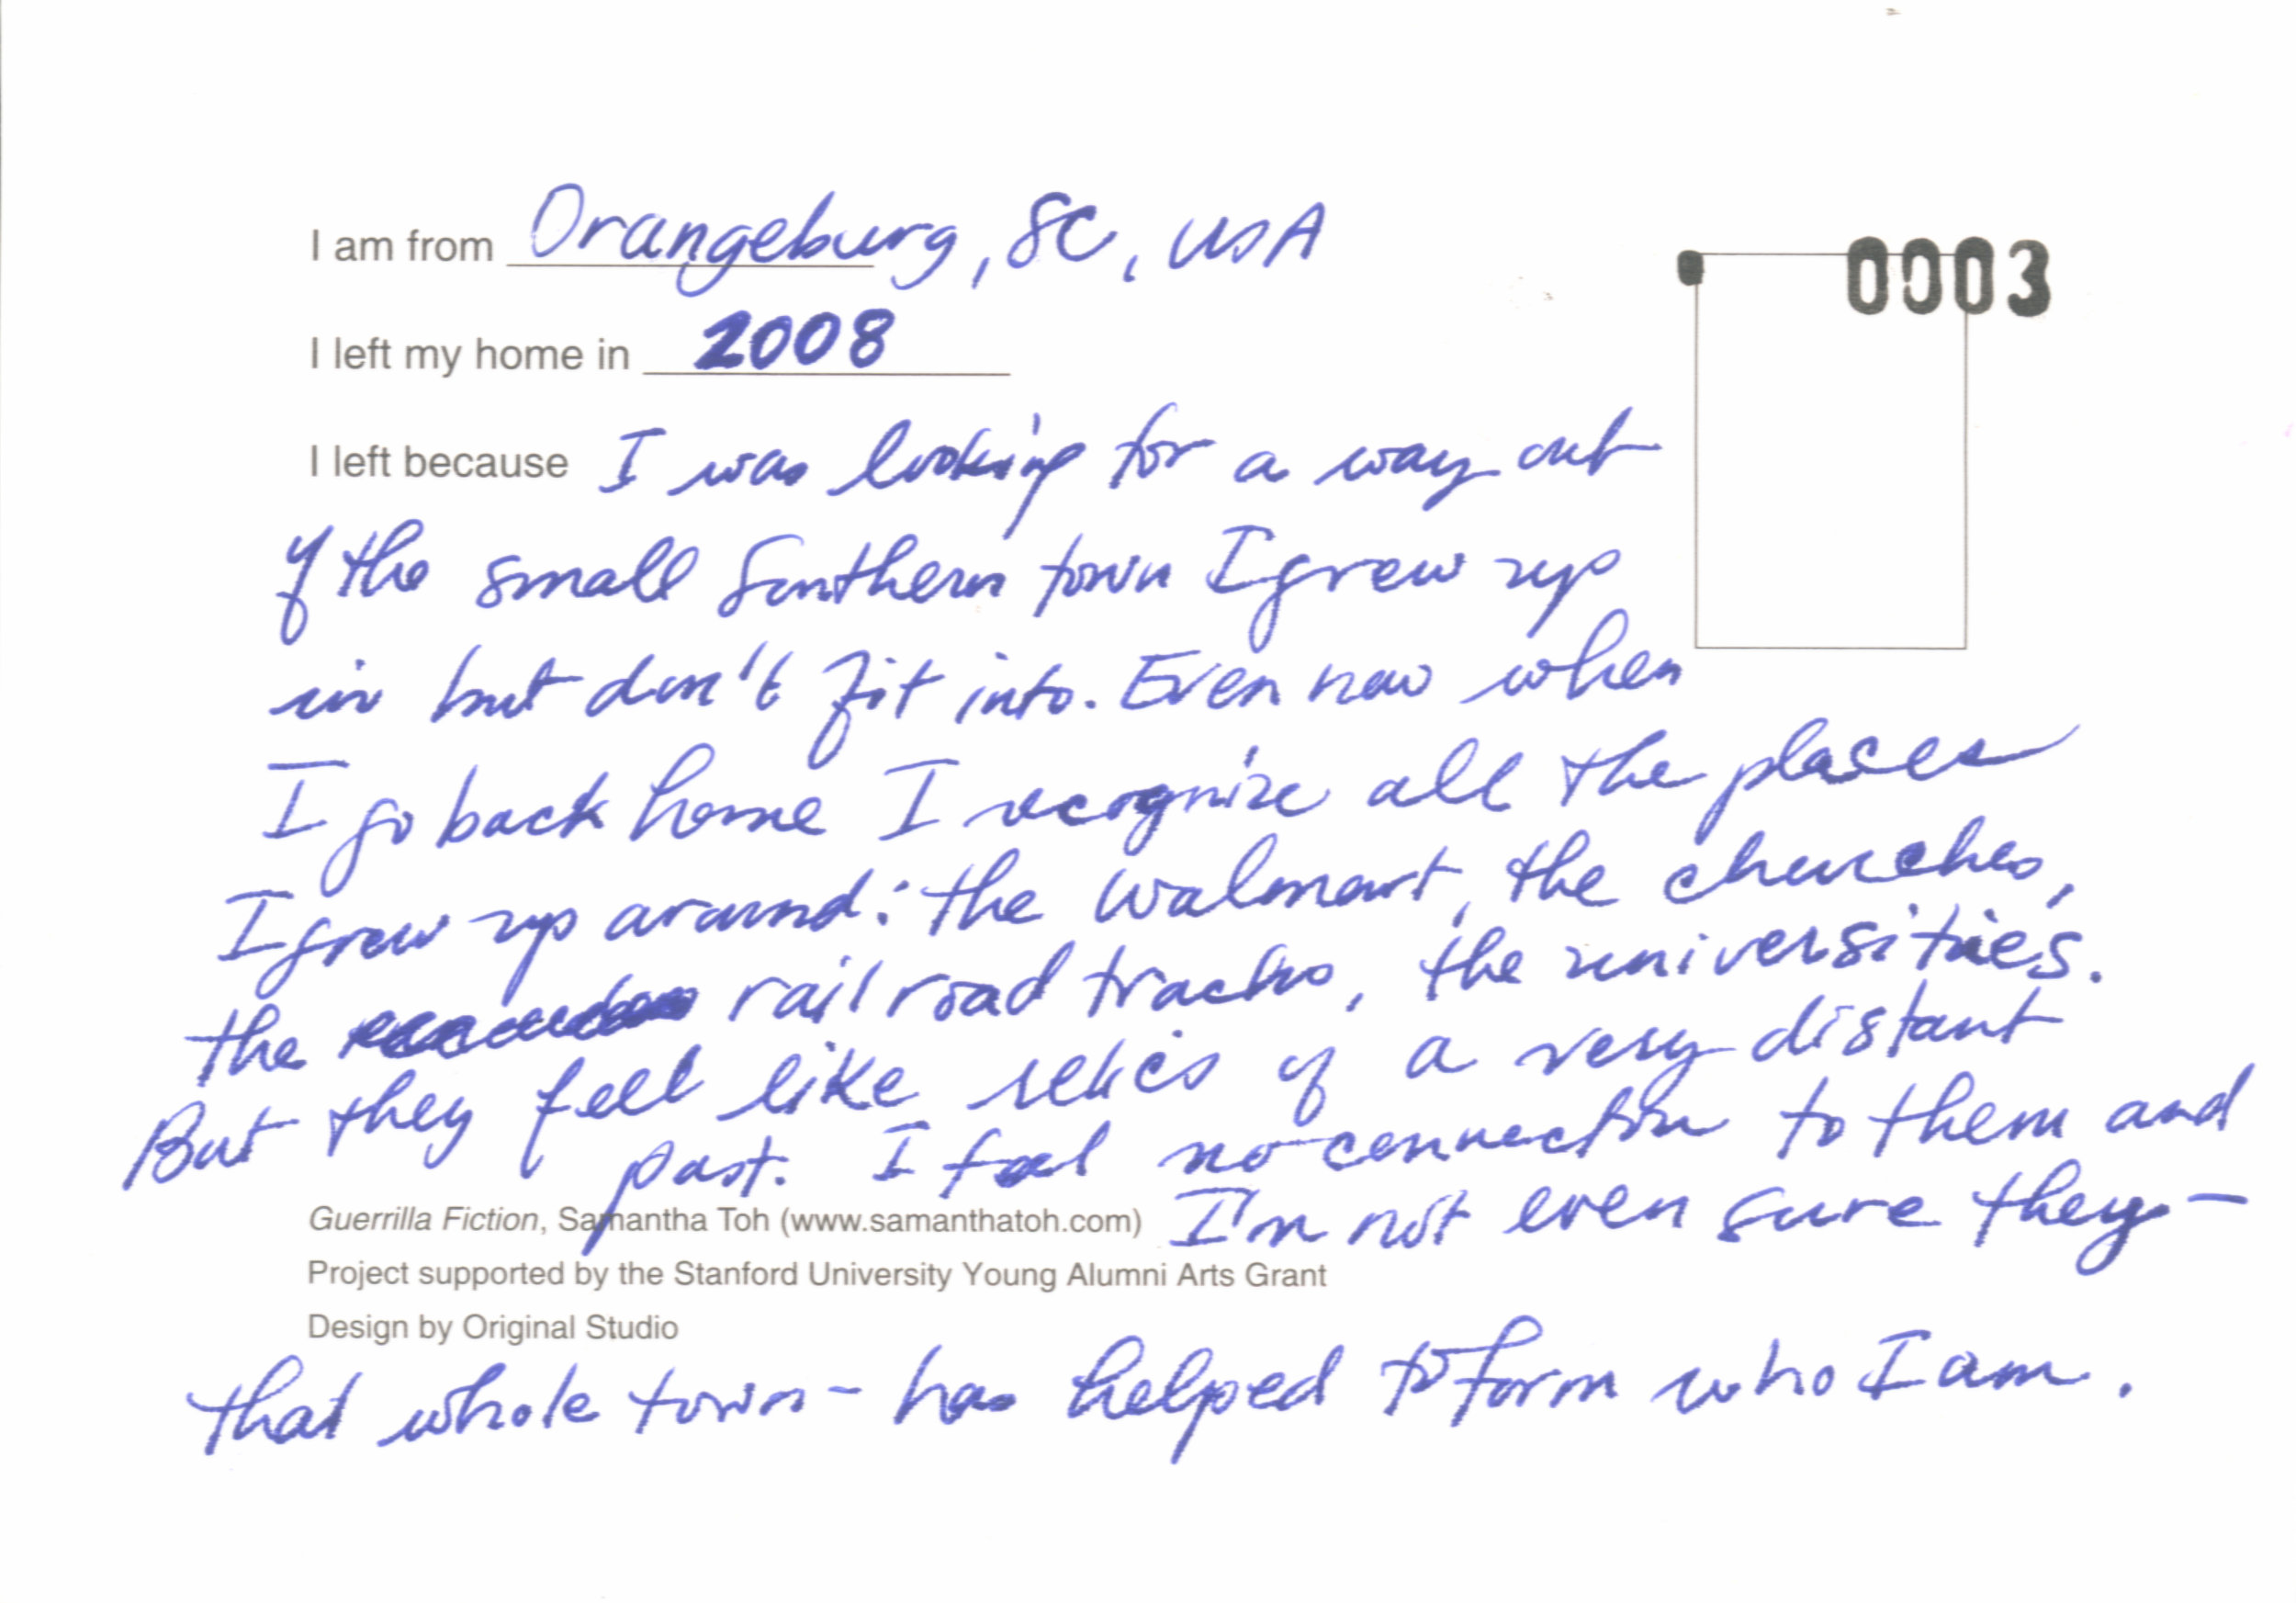 I am from Orangeburg, SC, USA
0003
I left my home in 2008
I left because I was looking for a way out
of the small Southern town I grew up
in but don't fit into. Even now when
I go back home I recognize all the places
I grew up around: the Walmart, the churches,
the railroad tracks, the universities.
But they feel like relics of a very distant
past. I feel no connection to them and
Guerrilla Fiction, Samantha Toh (www.samanthatoh.com) I'm not even sure they –
Project supported by the Stanford University Young Alumni Arts Grant
Design by Original Studio
that whole town – has helped to form who I am.